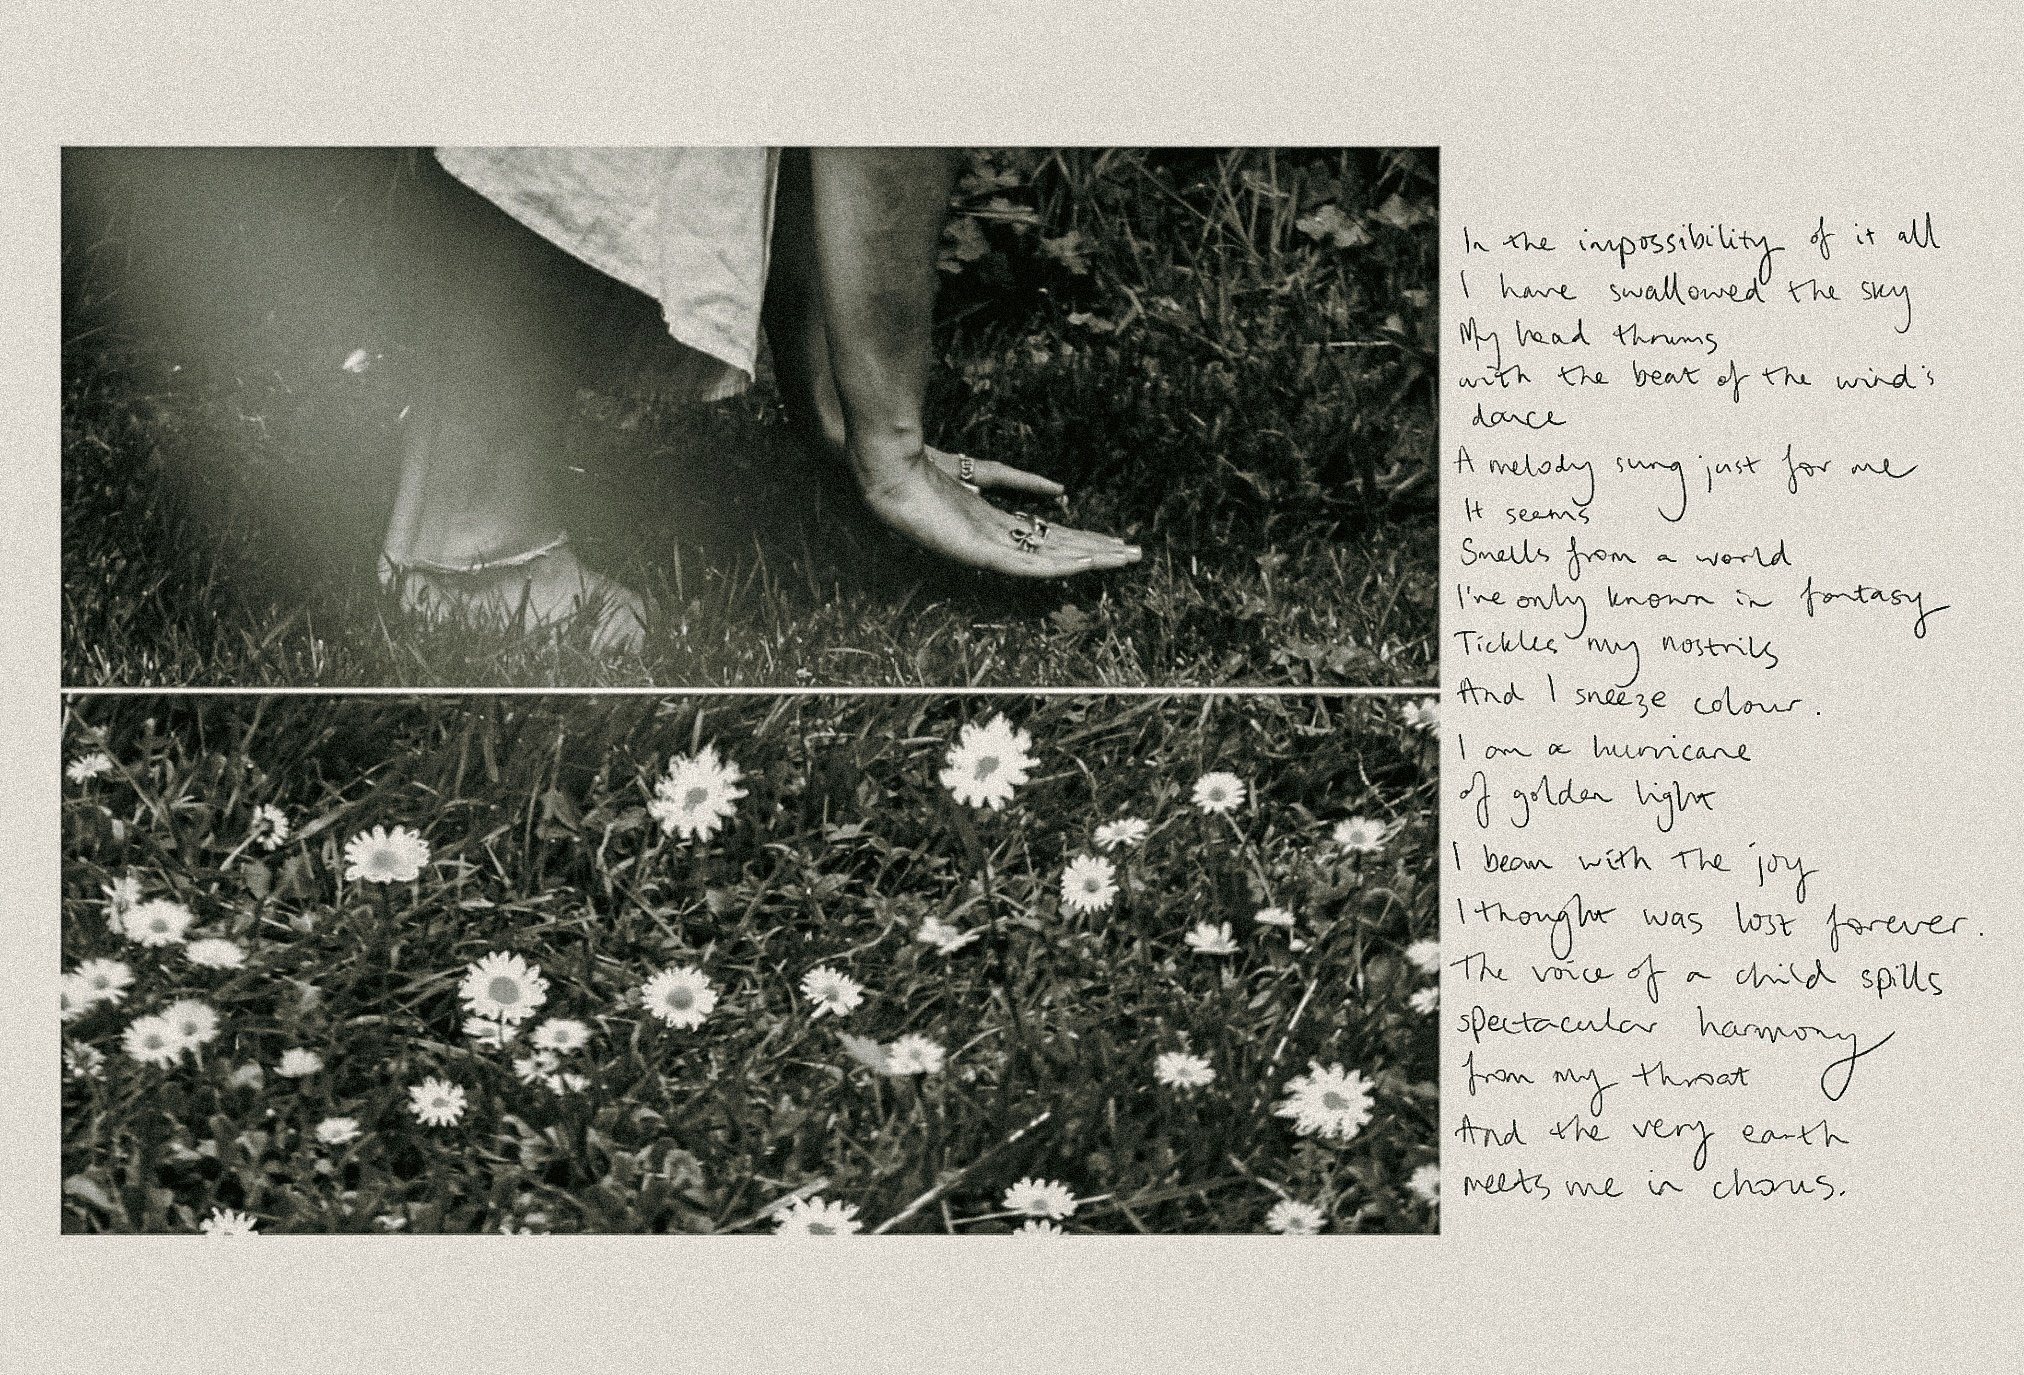 In the impossibility of it all
I have swallowed the sky
My head thrums
with the beat of the wind's
dance
A melody sung just for me
It seems
Smells from a world
I've only known in fantasy
Tickles my nostrils
And I sneeze colour.
I am a hurricane
of golden light
I beam with the joy
I thought was lost forever.
The voice of a child spills
spectacular harmony
from my throat
And the very earth
meets me in chorus.